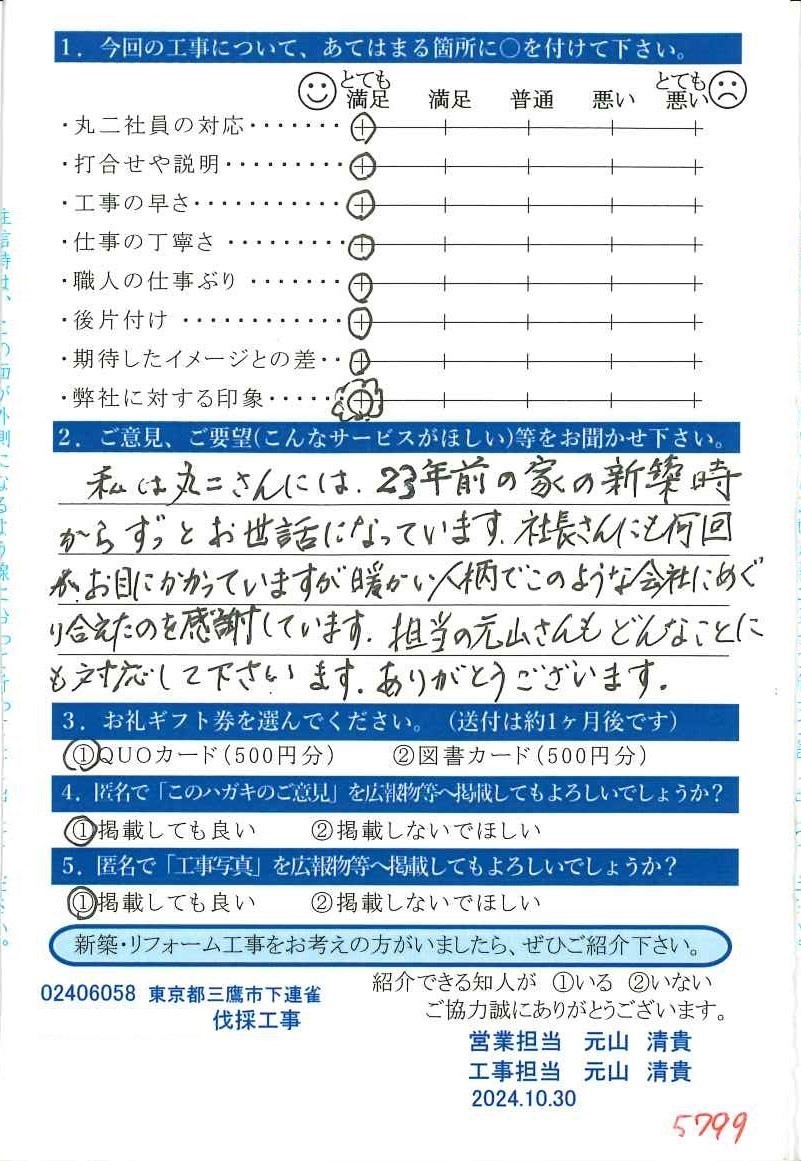 1．今回の工事について、あてはまる箇所に○を付けて下さい。
とても満足 満足 普通 悪い とても悪い
・丸二社員の対応・・・・・・・
・打合せや説明・・・・・・・・・
・工事の早さ・・・・・・・・・・・
・仕事の丁寧さ ・・・・・・・・・
・職人の仕事ぶり ・・・・・・・
・後片付け ・・・・・・・・・・・・
・期待したイメージとの差・・
・弊社に対する印象・・・・・
2．ご意見、ご要望(こんなサービスがほしい)等をお聞かせ下さい。
私は丸二さんには、23年前の家の新築時
からずっとお世話になっています。社長さんにも何回
かお目にかかっていますが暖かい人柄でこのような会社にめぐ
り合えたのを感謝しています。担当の元山さんもどんなことに
も対応して下さいます。ありがとうございます。
3．お礼ギフト券を選んでください。（送付は約1ヶ月後です）
①QUOカード(500円分) ②図書カード(500円分)
4．匿名で「このハガキのご意見」を広報物等へ掲載してもよろしいでしょうか？
①掲載しても良い ②掲載しないでほしい
5．匿名で「工事写真」を広報物等へ掲載してもよろしいでしょうか？
①掲載しても良い ②掲載しないでほしい
新築・リフォーム工事をお考えの方がいましたら、ぜひご紹介下さい。
紹介できる知人が ①いる ②いない
ご協力誠にありがとうございます。
02406058 東京都三鷹市下連雀
伐採工事
営業担当 元山 清貴
工事担当 元山 清貴
2024.10.30
5799